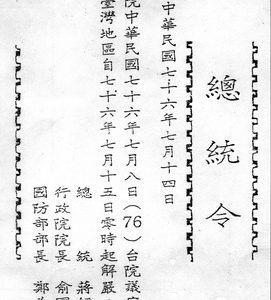 總統令
中華民國七十六年七月十四日
院中華民國七十六年七月八日（76）台院議
臺灣地區自七十六年七月十五日零時起解嚴
總統 蔣
行政院院長 俞
國防部部長 鄭